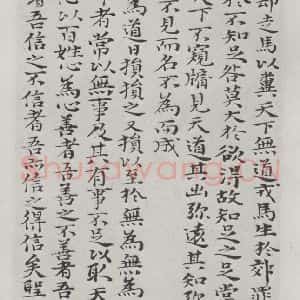 却走馬以糞天下無道戎馬生於郊罪
於不知足咎莫大於欲得故知足之足常
天下不窺牖見天道其出弥遠其知弥
不見而名不為而成
為道日損損之又損以至於無為無為
者常以無事及其有事不足以取天
心以百姓心為心善者吾善之不善者吾
者吾信之不信者吾信之得信矣聖
Shufawang.CN